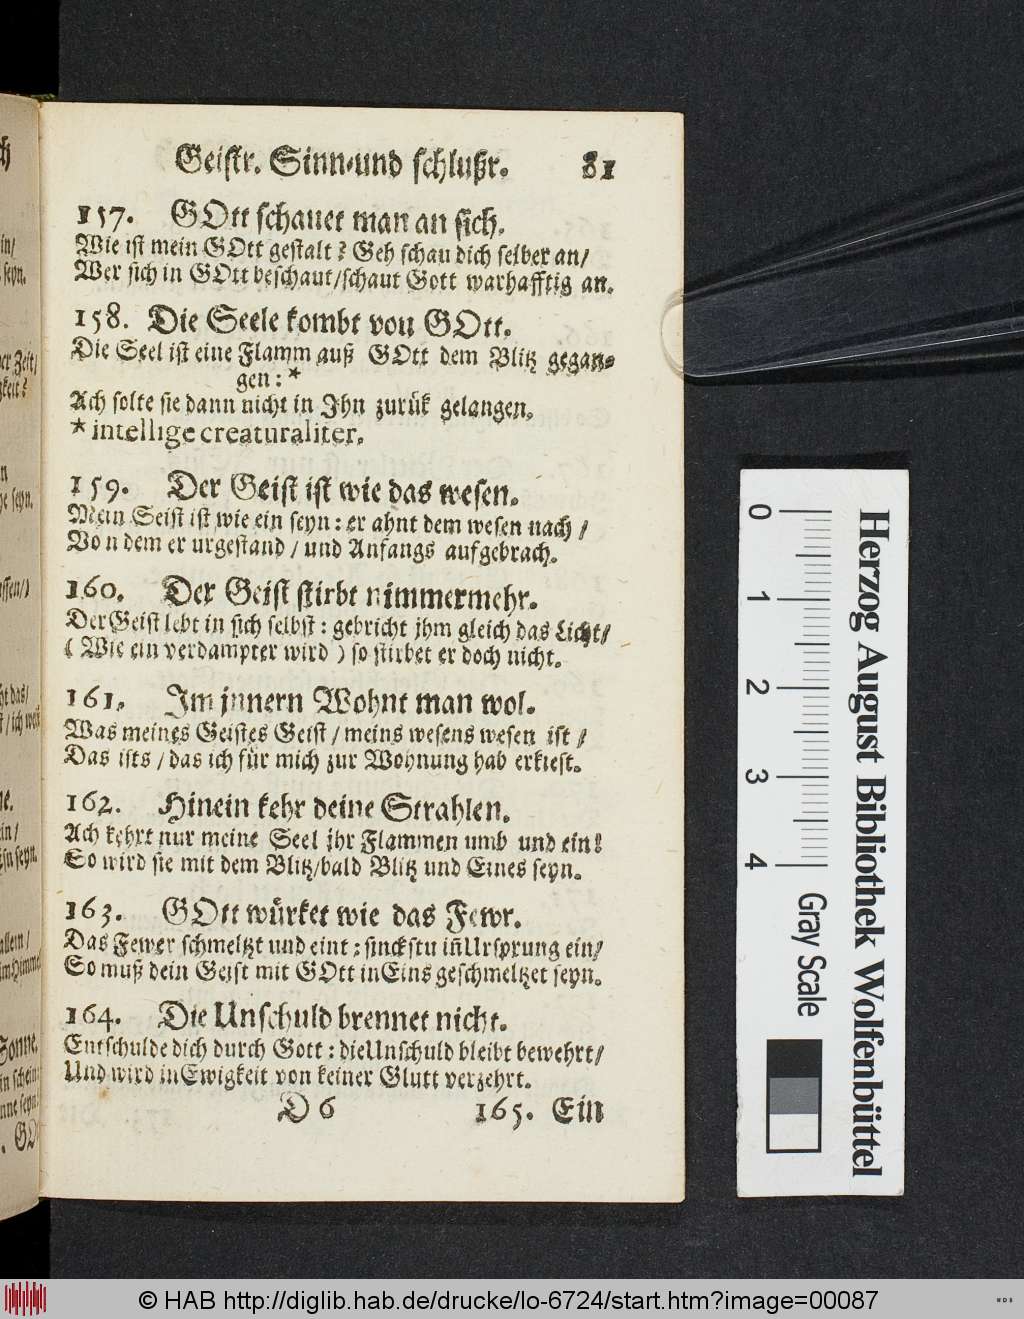 Geistr. Sinn-und schlußr. 81
157. GOtt schauet man an sich.
Wie ist mein GOtt gestalt? Geh schau dich selber an/
Wer sich in GOtt beschaut/schaut Gott warhafftig an.
158. Die Seele kombt von GOtt.
Die Seel ist eine Flamm auß GOtt dem Blitz gegan-
gen: *
Ach solte sie dann nicht in Jhn zurük gelangen.
* intellige creaturaliter.
159. Der Geist ist wie das wesen.
Mein Geist ist wie ein seyn: er ahnt dem wesen nach /
Vo n dem er urgestand / und Anfangs aufgebrach.
160. Der Geist stirbt nimmermehr.
Der Geist lebt in sich selbst: gebricht jhm gleich das Licht/
( Wie ein verdampter wird ) so stirbet er doch nicht.
161. Jm jnnern Wohnt man wol.
Was meines Geistes Geist / meins wesens wesen ist /
Das ists / das ich für mich zur Wohnung hab erkiest.
162. Hinein kehr deine Strahlen.
Ach kehrt nur meine Seel jhr Flammen umb und ein!
So wird sie mit dem Blitz/bald Blitz und Eines seyn.
163. GOtt würket wie das Fewr.
Das Fewer schmeltzt und eint: sinckstu in̄ Ursprung ein/
So muß dein Geist mit GOtt in Eins geschmeltzet seyn.
164. Die Unschuld brennet nicht.
Entschulde dich durch Gott: die Unschuld bleibt bewehrt/
Und wird in Ewigkeit von keiner Glutt verzehrt.
D 6 165. Ein
0 1 2 3 4
Gray Scale
Herzog August Bibliothek Wolfenbüttel
© HAB http://diglib.hab.de/drucke/lo-6724/start.htm?image=00087